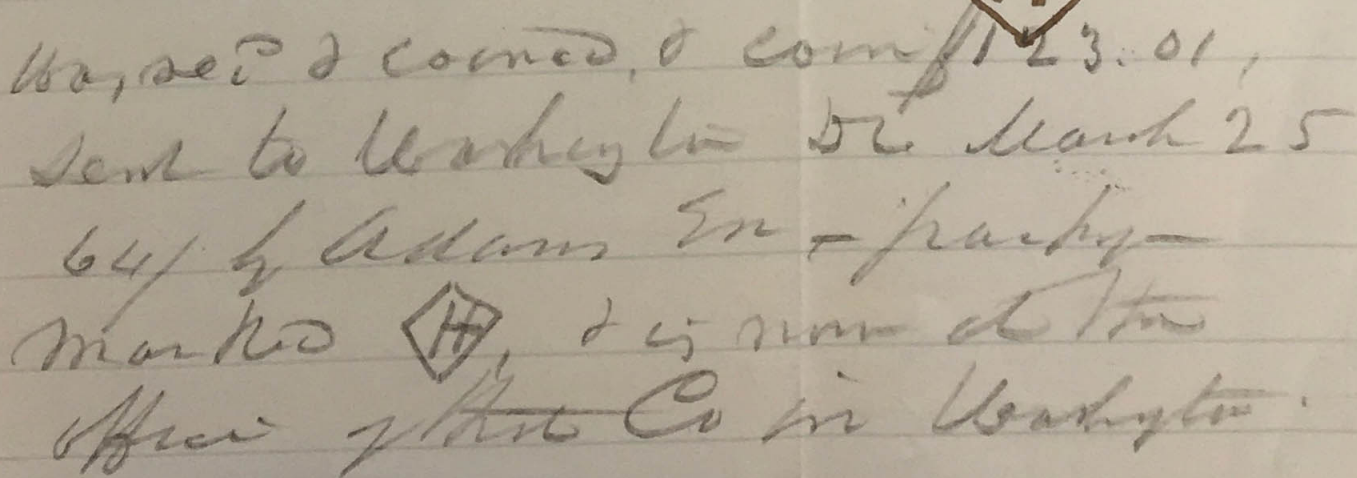 rec'd & corned, & com $123.01,
sent to Washington DC March 25
64/ by Adams Ex - packg -
marked H, & is now at the
office of that Co in Washington.